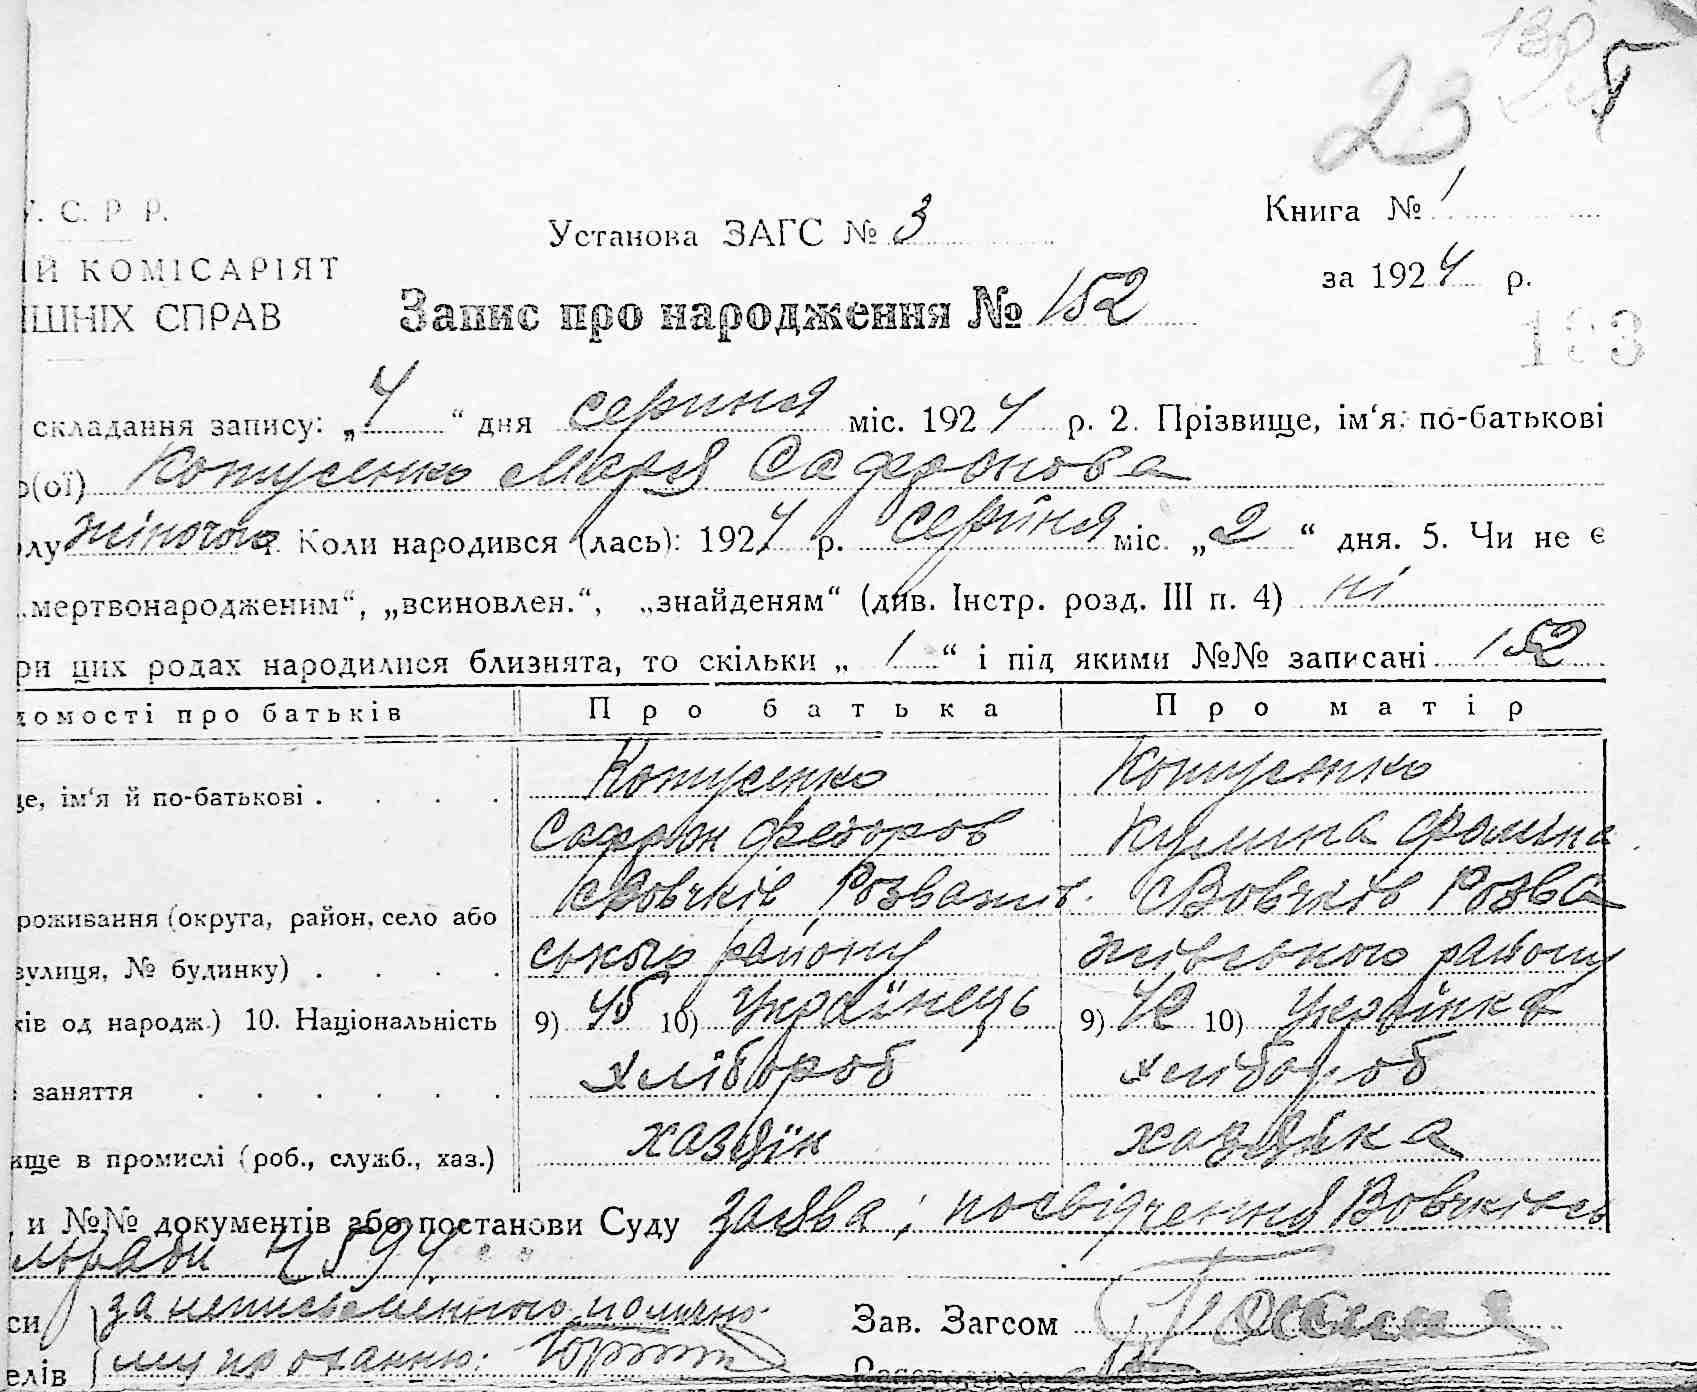 23
У. С. Р. Р.
Установа ЗАГС № 3
Книга № 1
ИЙ КОМІСАРІЯТ
за 1924 р.
ІШНІХ СПРАВ
Запис про народження № 152
складання запису: „4“ дня серпня міс. 1924 р. 2. Прізвище, ім‘я, по-батькові
о(ої) Копусенко Марія Сафронова
лу жіночого. Коли народився (лась): 1924 р. серпня міс. „2“ дня. 5. Чи не є
„мертвонародженим“, „всиновлен.“, „знайденям“ (див. Інстр. розд. III п. 4) ні
ри цих родах народилися близнята, то скільки „1“ і під якими №№ записані 152
домості про батьків Про батька Про матір
Копусенко Копусенко
це, ім‘я й по-батькові . . . .
Сафрон Федоров Кулина Фоміна
Вовчків Розважів- с Вовчків Розва
роживання (округа, район, село або
ського району жівського району
вулиця, № будинку) . . . .
ків од народж.) 10. Національність 9) 45 10) Українець 9) 42 10) Українка
хлібороб хлібороб
заняття . . . . . .
хазяїн хазяйка
ище в промислі (роб., служб., хаз.)
и №№ документів або постанови Суду заява, посвідчення Вовчківсь
льради
си за неписьменного по
елів му проханню: Зав. Загсом